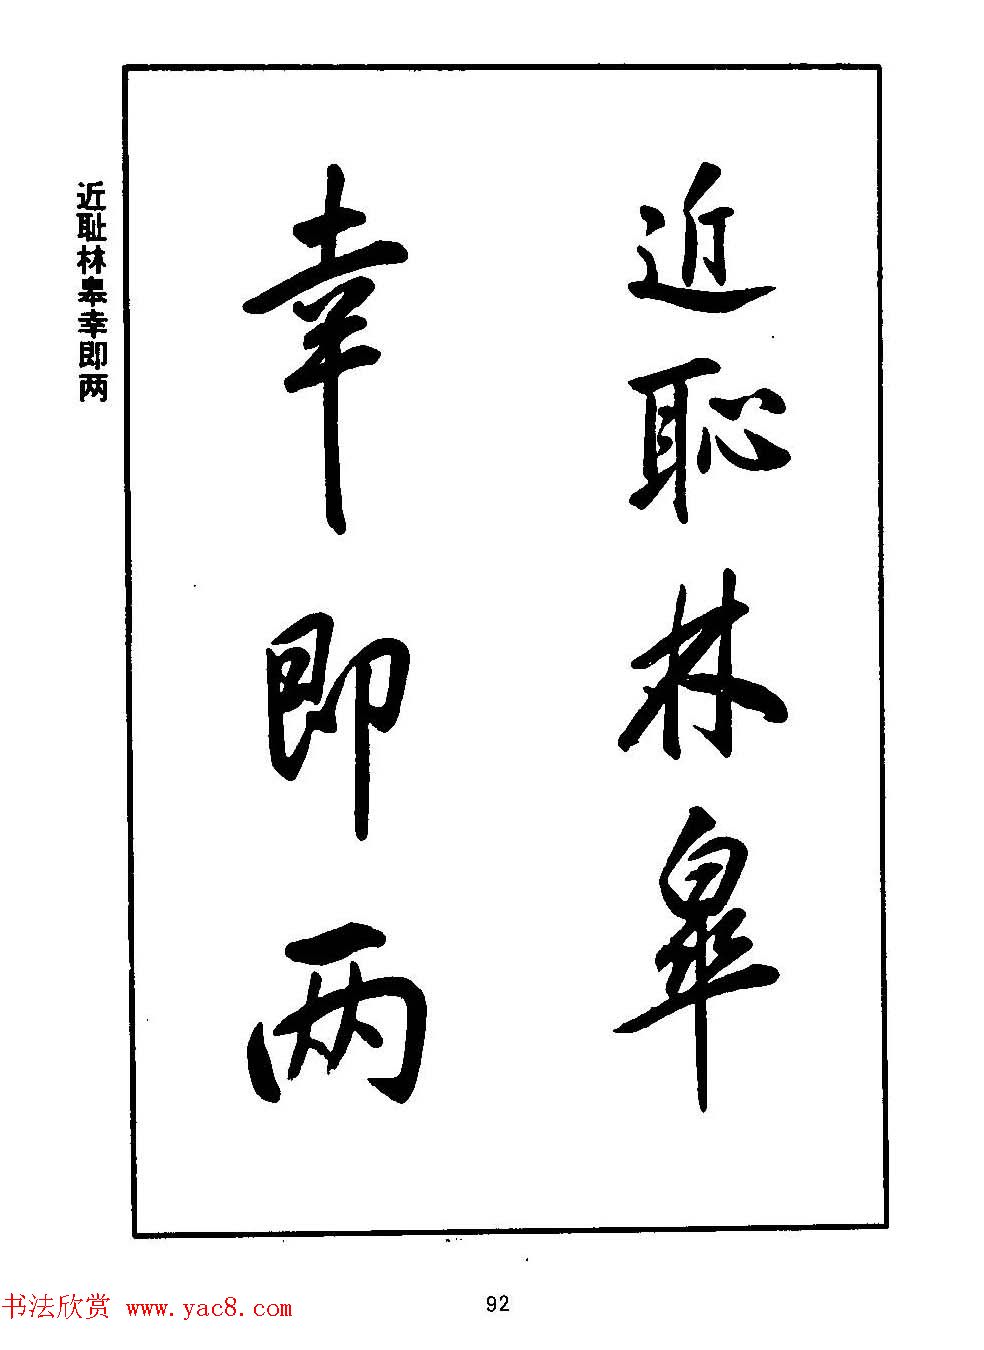 近恥林皋
幸即两
近耻林皋幸即两
书法欣赏 www.yac8.com
92